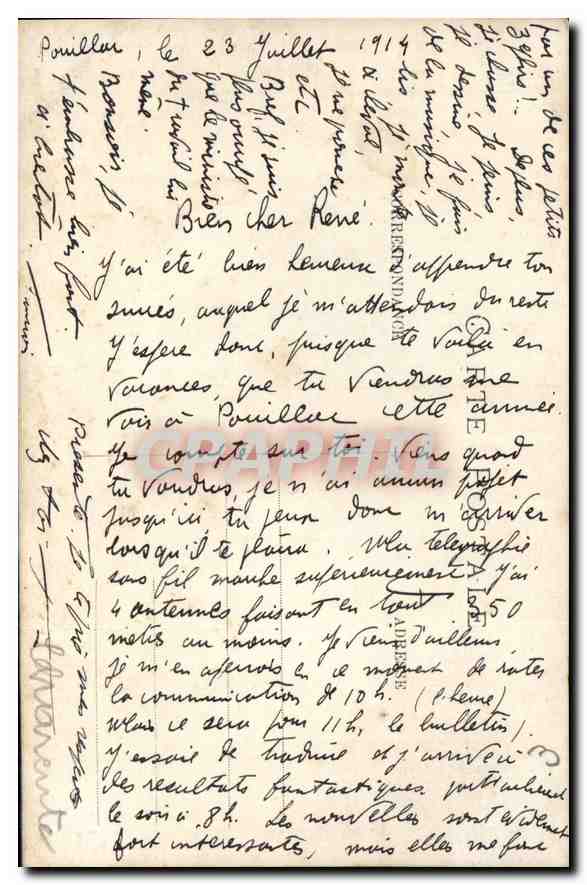 Pouillac, le 23 Juillet 1914
Bien cher René.
J'ai été bien heureux d'apprendre ton
succès, auquel je m'attendais du reste
J'espère donc, puisque te voilà en
vacances, que tu viendras me
voir à Pouillac cette année.
Je compte sur toi. Viens quand
tu voudras, je n'ai aucun projet
jusqu'ici tu peux donc m'arriver
lorsqu'il te plaira. Ma télégraphie
sans fil marche supérieurement j'ai
4 antennes faisant en tout 50
mètres au moins. Je viens d'ailleurs
je m'en aperçois en ce moment de rater
la communication de 10h. (l'heure)
Mais ce sera pour 11h, le bulletin.
J'essaie de traduire et j'arrive à
des résultats fantastiques particulièrement
le soir à 8h. Les nouvelles sont évidemment
fort intéressantes, mais elles me font
par un de ces petits
zéphirs! De plus,
je chasse, je peins
je dessine, je fais
de la musique, je
lis, je monte
à cheval,
je me promène
etc
Bref, je suis
plus occupé
que le ministre
du travail lui
même.
Bonsoir, je
t'embrasse bien fort.
à bientôt.
Présente je te prie mes respects
chez toi
CARTE POSTALE
CORRESPONDANCE
ADRESSE
CPAPHIL
3